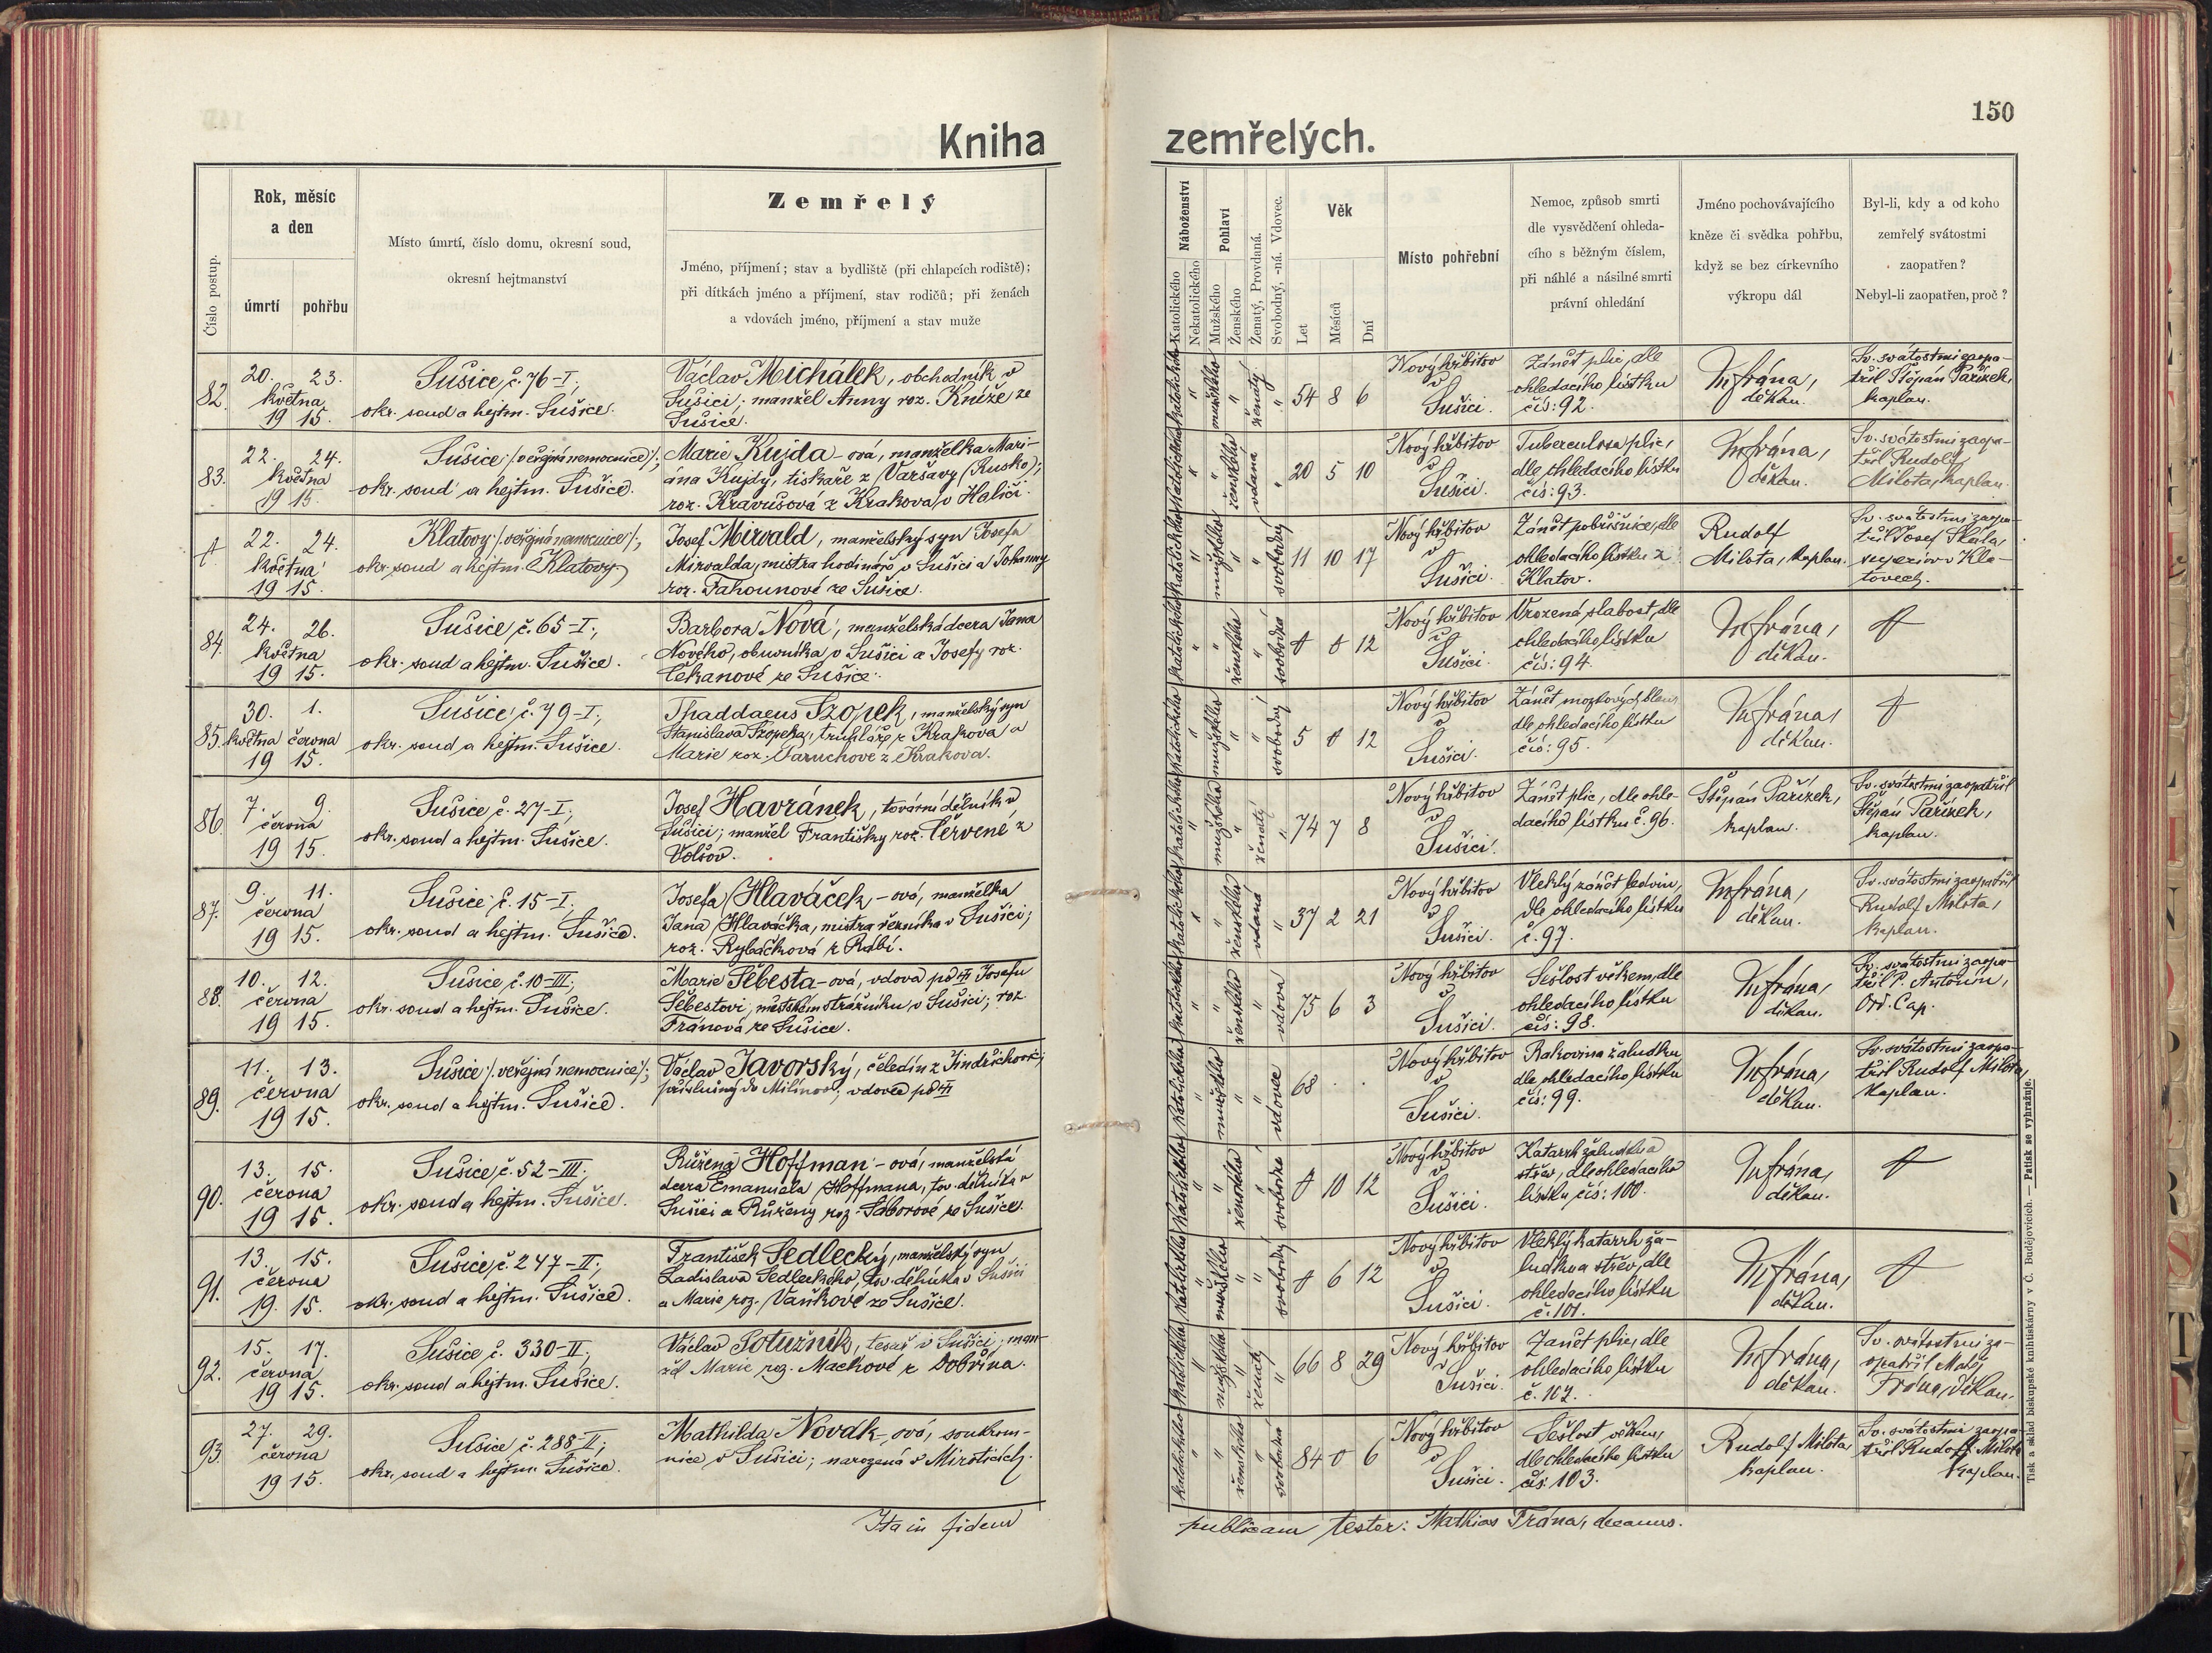 150
Kniha zemřelých.
Číslo postup.
Rok, měsíc
a den
úmrtí
pohřbu
Místo úmrtí, číslo domu, okresní soud,
okresní hejtmanství
Zemřelý
Jméno, příjmení; stav a bydliště (při chlapcích rodiště);
při dítkách jméno a příjmení, stav rodičů; při ženách
a vdovách jméno, příjmení a stav muže
Náboženství
Katolického
Nekatolického
Pohlaví
Mužského
Ženského
Ženatý, Provdaná.
Svobodný, -ná. Vdovec.
Věk
Let
Měsíců
Dní
Místo pohřební
Nemoc, způsob smrti
dle vysvědčení ohleda-
cího s běžným číslem,
při náhlé a násilné smrti
právní ohledání
Jméno pochovávajícího
kněze či svědka pohřbu,
když se bez církevního
výkropu dál
Byl-li, kdy a od koho
zemřelý svátostmi
zaopatřen?
Nebyl-li zaopatřen, proč?
82.
20. 23.
května
19 15.
Sušice č. 76-I.,
okr. soud a hejtm. Sušice.
Václav Michálek, obchodník v
Sušici; manžel Anny roz. Kníže ze
Sušice.
katolického
mužského
ženatý
54 8 6
Nový hřbitov
v
Sušici.
Zánět plic, dle
ohledacího lístku
čís: 92.
M Frána,
děkan.
Sv. svátostmi zaopa-
třil Štěpán Pařízek,
kaplan.
83.
22. 24.
května
19 15.
Sušice /: veřejná nemocnice :/;
okr. soud a hejtm. Sušice.
Marie Kujda-ová, manželka Mari-
ána Kujdy, tiskaře z Varšavy (Rusko);
roz. Kravusová z Krakova, v Haliči.
katolického
ženského
vdaná
20 5 10
Nový hřbitov
v
Sušici.
Tuberculosa plic,
dle ohledacího lístku
čís: 93.
M Frána,
děkan.
Sv. svátostmi zaopa-
třil Rudolf
Milota, kaplan.
22. 24.
května
19 15.
Klatovy /: veřejná nemocnice :/;
okr. soud a hejtm. Klatovy.
Josef Mirvald, manželský syn Josefa
Mirvalda, mistra hodináře v Sušici a Johanny
roz. Tahounové ze Sušice.
katolického
mužského
svobodný
11 10 17
Nový hřbitov
v
Sušici.
Zánět pobřišnice, dle
ohledacího lístku z
Klatov.
Rudolf
Milota, kaplan.
Sv. svátostmi zaopa-
třil Josef Skala,
v Kla-
tovech.
84.
24. 26.
května
19 15.
Sušice č. 65-I.,
okr. soud a hejtm. Sušice.
Barbora Nová, manželská dcera Jana
Nového, obuvníka v Sušici a Josefy roz.
Čekanové ze Sušice.
katolického
ženského
svobodná
0 0 12
Nový hřbitov
v
Sušici.
Vrozená slabost, dle
ohledacího lístku
čís: 94.
M Frána,
děkan.
85.
30. 1.
května června
19 15.
Sušice č. 79-I.,
okr. soud a hejtm. Sušice.
Thaddaeus Szopek, manželský syn
Stanislava Szopeka, truhláře z Krakova a
Marie roz. Paruchové z Krakova.
katolického
mužského
svobodný
5 0 12
Nový hřbitov
v
Sušici.
Zánět mozkových blan,
dle ohledacího lístku
čís: 95.
M Frána,
děkan.
86.
7. 9.
června
19 15.
Sušice č. 27-I.,
okr. soud a hejtm. Sušice.
Josef Havránek, tovární dělník v
Sušici; manžel Františky roz. Červené z
Volšov.
katolického
mužského
ženatý
74 7 8
Nový hřbitov
v
Sušici.
Zánět plic, dle ohle-
dacího lístku č. 96.
Štěpán Pařízek,
kaplan.
Sv. svátostmi zaopatřil
Štěpán Pařízek,
kaplan.
87.
9. 11.
června
19 15.
Sušice č. 15-I.
okr. soud a hejtm. Sušice.
Josefa Hlaváček-ová, manželka
Jana Hlaváčka, mistra řezníka v Sušici;
roz. Rybáčková z Rábí.
katolického
ženského
vdaná
37 2 21
Nový hřbitov
v
Sušici.
Vleklý zánět ledvin,
dle ohledacího lístku
č. 97.
M Frána,
děkan.
Sv. svátostmi zaopatřil
Rudolf Milota,
kaplan.
88.
10. 12.
června
19 15.
Sušice č. 10-III.,
okr. soud a hejtm. Sušice.
Marie Šebesta-ová, vdova po Josefu
Šebestovi, městském strážníku v Sušici; roz.
Fránová ze Sušice.
katolického
ženského
vdova
75 6 3
Nový hřbitov
v
Sušici.
Sešlost věkem, dle
ohledacího lístku
čís: 98.
M Frána,
děkan.
Sv. svátostmi zaopa-
třil P. Antonín,
Ord. Cap.
89.
11. 13.
června
19 15.
Sušice /: veřejná nemocnice :/;
okr. soud a hejtm. Sušice.
Václav Javorský, čeledín z Jindřichovic,
příslušný do Milínova, vdovec po
katolického
mužského
vdovec
68 . .
Nový hřbitov
v
Sušici.
Rakovina žaludku
dle ohledacího lístku
čís: 99.
M Frána,
děkan.
Sv. svátostmi zaopa-
třil Rudolf Milota,
kaplan.
90.
13. 15.
června
19 15.
Sušice č. 52-III.
okr. soud a hejtm. Sušice.
Růžena Hoffman-ová, manželská
dcera Emanuela Hoffmana, tov. dělníka v
Sušici a Růženy roz. Táborové ze Sušice.
katolického
ženského
svobodná
0 10 12
Nový hřbitov
v
Sušici.
Katarrh žaludku a
střev, dle ohledacího
lístku čís: 100.
M Frána,
děkan.
91.
13. 15.
června
19. 15.
Sušice č. 247-II.,
okr. soud a hejtm. Sušice.
František Sedlecký, manželský syn
Ladislava Sedleckého, tov. dělníka v Sušici
a Marie roz. Vaňkové ze Sušice.
katolického
mužského
svobodný
0 6 12
Nový hřbitov
v
Sušici.
Vleklý katarrh ža-
ludku a střev, dle
ohledacího lístku
č. 101.
M Frána,
děkan.
92.
15. 17.
června
19 15.
Sušice č. 330-II.,
okr. soud a hejtm. Sušice.
Václav Soturník, tesař v Sušici; man-
žel Marie roz. Mackové z Dobřína.
katolického
mužského
ženatý
66 8 29
Nový hřbitov
v
Sušici.
Zánět plic, dle
ohledacího lístku
č. 102.
M Frána,
děkan.
Sv. svátostmi za-
opatřil Matěj
Frána, děkan.
93.
27. 29.
června
19 15.
Sušice č. 288-II.,
okr. soud a hejtm. Sušice.
Mathilda Novák-ová, soukrom-
nice v Sušici; narozená v Miroticích.
katolického
ženského
svobodná
84 0 6
Nový hřbitov
v
Sušici.
Sešlost věkem,
dle ohledacího lístku
čís. 103.
Rudolf Milota,
kaplan.
Sv. svátostmi zaopa-
třil Rudolf Milota,
kaplan.
Ita in fidem
publicam testor: Mathias Frána, decanus.
Tisk a sklad biskupské knihtiskárny v Č. Budějovicích. — Patisk se vyhražuje.